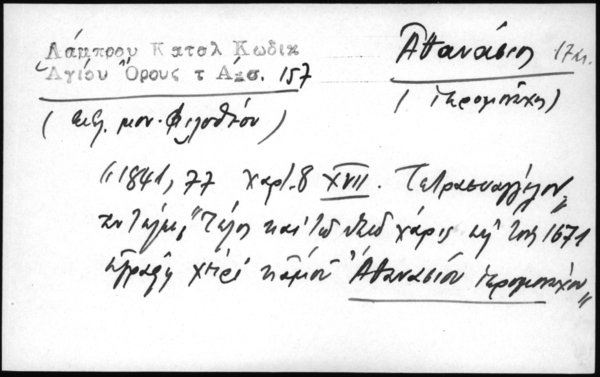 Λάμπρου Καταλ Κωδικ
Ἁγίου Ὄρους τ Α, σ. 157
Ἀθανάσιος 17 αι.
(Ἱερομόναχος)
( μον. Φιλοθέου )
"1841, 77 χαρτ. 8 XVII. Τετραευάγγελον"
"Τέλος καὶ τῷ Θεῷ χάρις 1671
ἐγράφη χειρὶ κἀμοῦ Ἀθανασίου ἱερομονάχου"